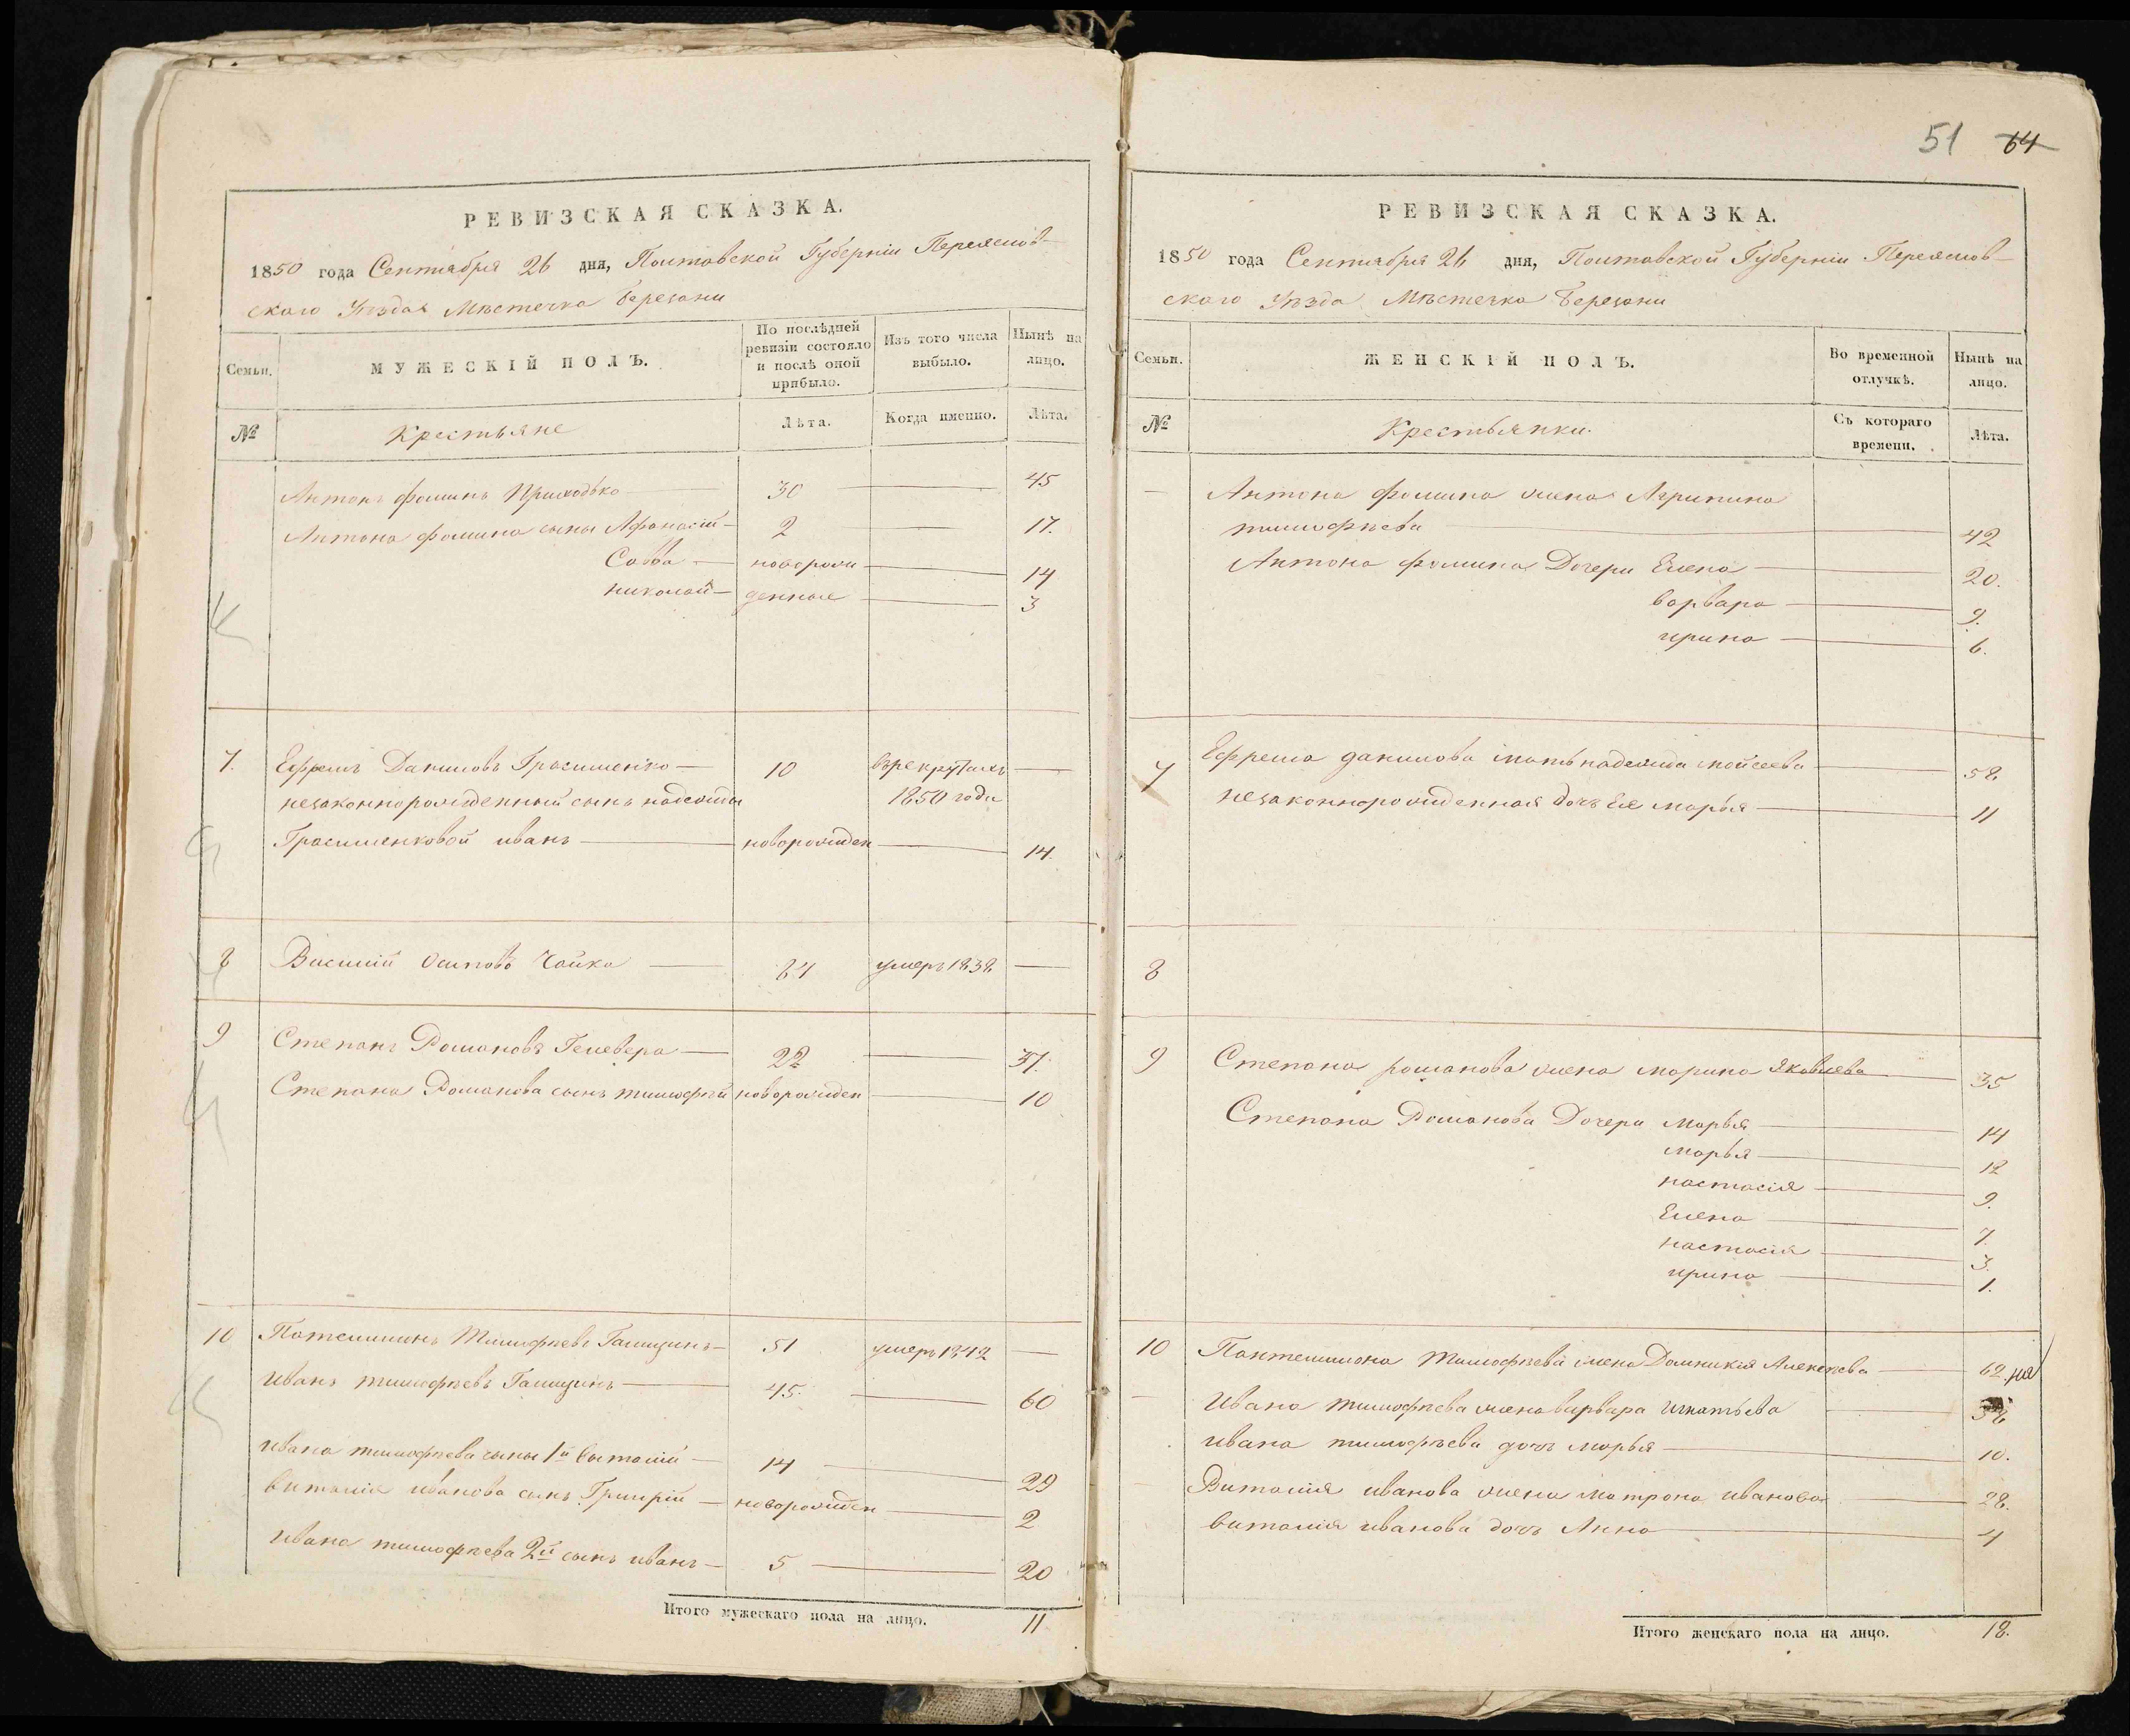 51 64
РЕВИЗСКАЯ СКАЗКА.
1850 года Сентября 26 дня, Полтавской Губерніи Переяслов-
скаго Уѣзда Мѣстечка Березани
Семьи. МУЖЕСКІЙ ПОЛЪ. По послѣдней ревизіи состояло и послѣ оной прибыло. Изъ того числа выбыло. Нынѣ на лицо.
№ Крестьяне Лѣта. Когда именно. Лѣта.
Антонъ Фоминъ Приходько 30 — 45
Антона Фомина сыны Афанасій 2 — 17.
Савва — новорож — 14
николай — денные — 3
7. Ефремъ Даниловъ Грасименко — 10 въ рекрутахъ —
незаконнорожденный сынъ надежды 1850 года
Грасименковой иванъ — новорожден — 14.
8 Василий Осиповъ Чайка — 84 умеръ 1838 —
9 Степанъ Романовъ Гелевера — 22 — 37.
Степана Романова сынъ тимофей новорожден — 10
10 Пантелимонъ Тимофеевъ Галицинъ — 51 умеръ 1842 —
иванъ тимофѣевъ Галицинъ — 45. — 60
ивана тимофѣева сыны 1й виталий — 14 — 29
виталия иванова сынъ Григрій — новорожден — 2
ивана тимофѣева 2й сынъ иванъ — 5 — 20
Итого мужескаго пола на лицо. 11
РЕВИЗСКАЯ СКАЗКА.
1850 года Сентября 26 дня, Полтавской Губерніи Переяслов-
скаго Уѣзда Мѣстечка Березани
Семьи. ЖЕНСКІЙ ПОЛЪ. Во временной отлучкѣ. Нынѣ на лицо.
№ Крестьянки. Съ котораго времени. Лѣта.
— Антона Фомина жена Агрипина
тимофѣева — 42
Антона фомина Дочери Елена — 20.
варвара — 9.
ирина — 6.
7 Ефрема данилова мать надежда мойсеева — 58
незаконнорожденная дочь Ея марья — 11
8
9 Степана романова жена марина Яковлева — 35
Степана Романова Дочери марья — 14
марья — 12
настасія — 9.
Елена — 7.
настасія — 3.
ирина — 1.
10 Пантелимона Тимофѣева жена Домникия Алексѣева — 62
— Ивана тимофѣева жена варвара игнатьева —
ивана тимофѣева дочь марья — 10.
— Виталия иванова жена матрона иванова — 28.
виталия иванова дочь Анна — 4
Итого женскаго пола на лицо. 18.